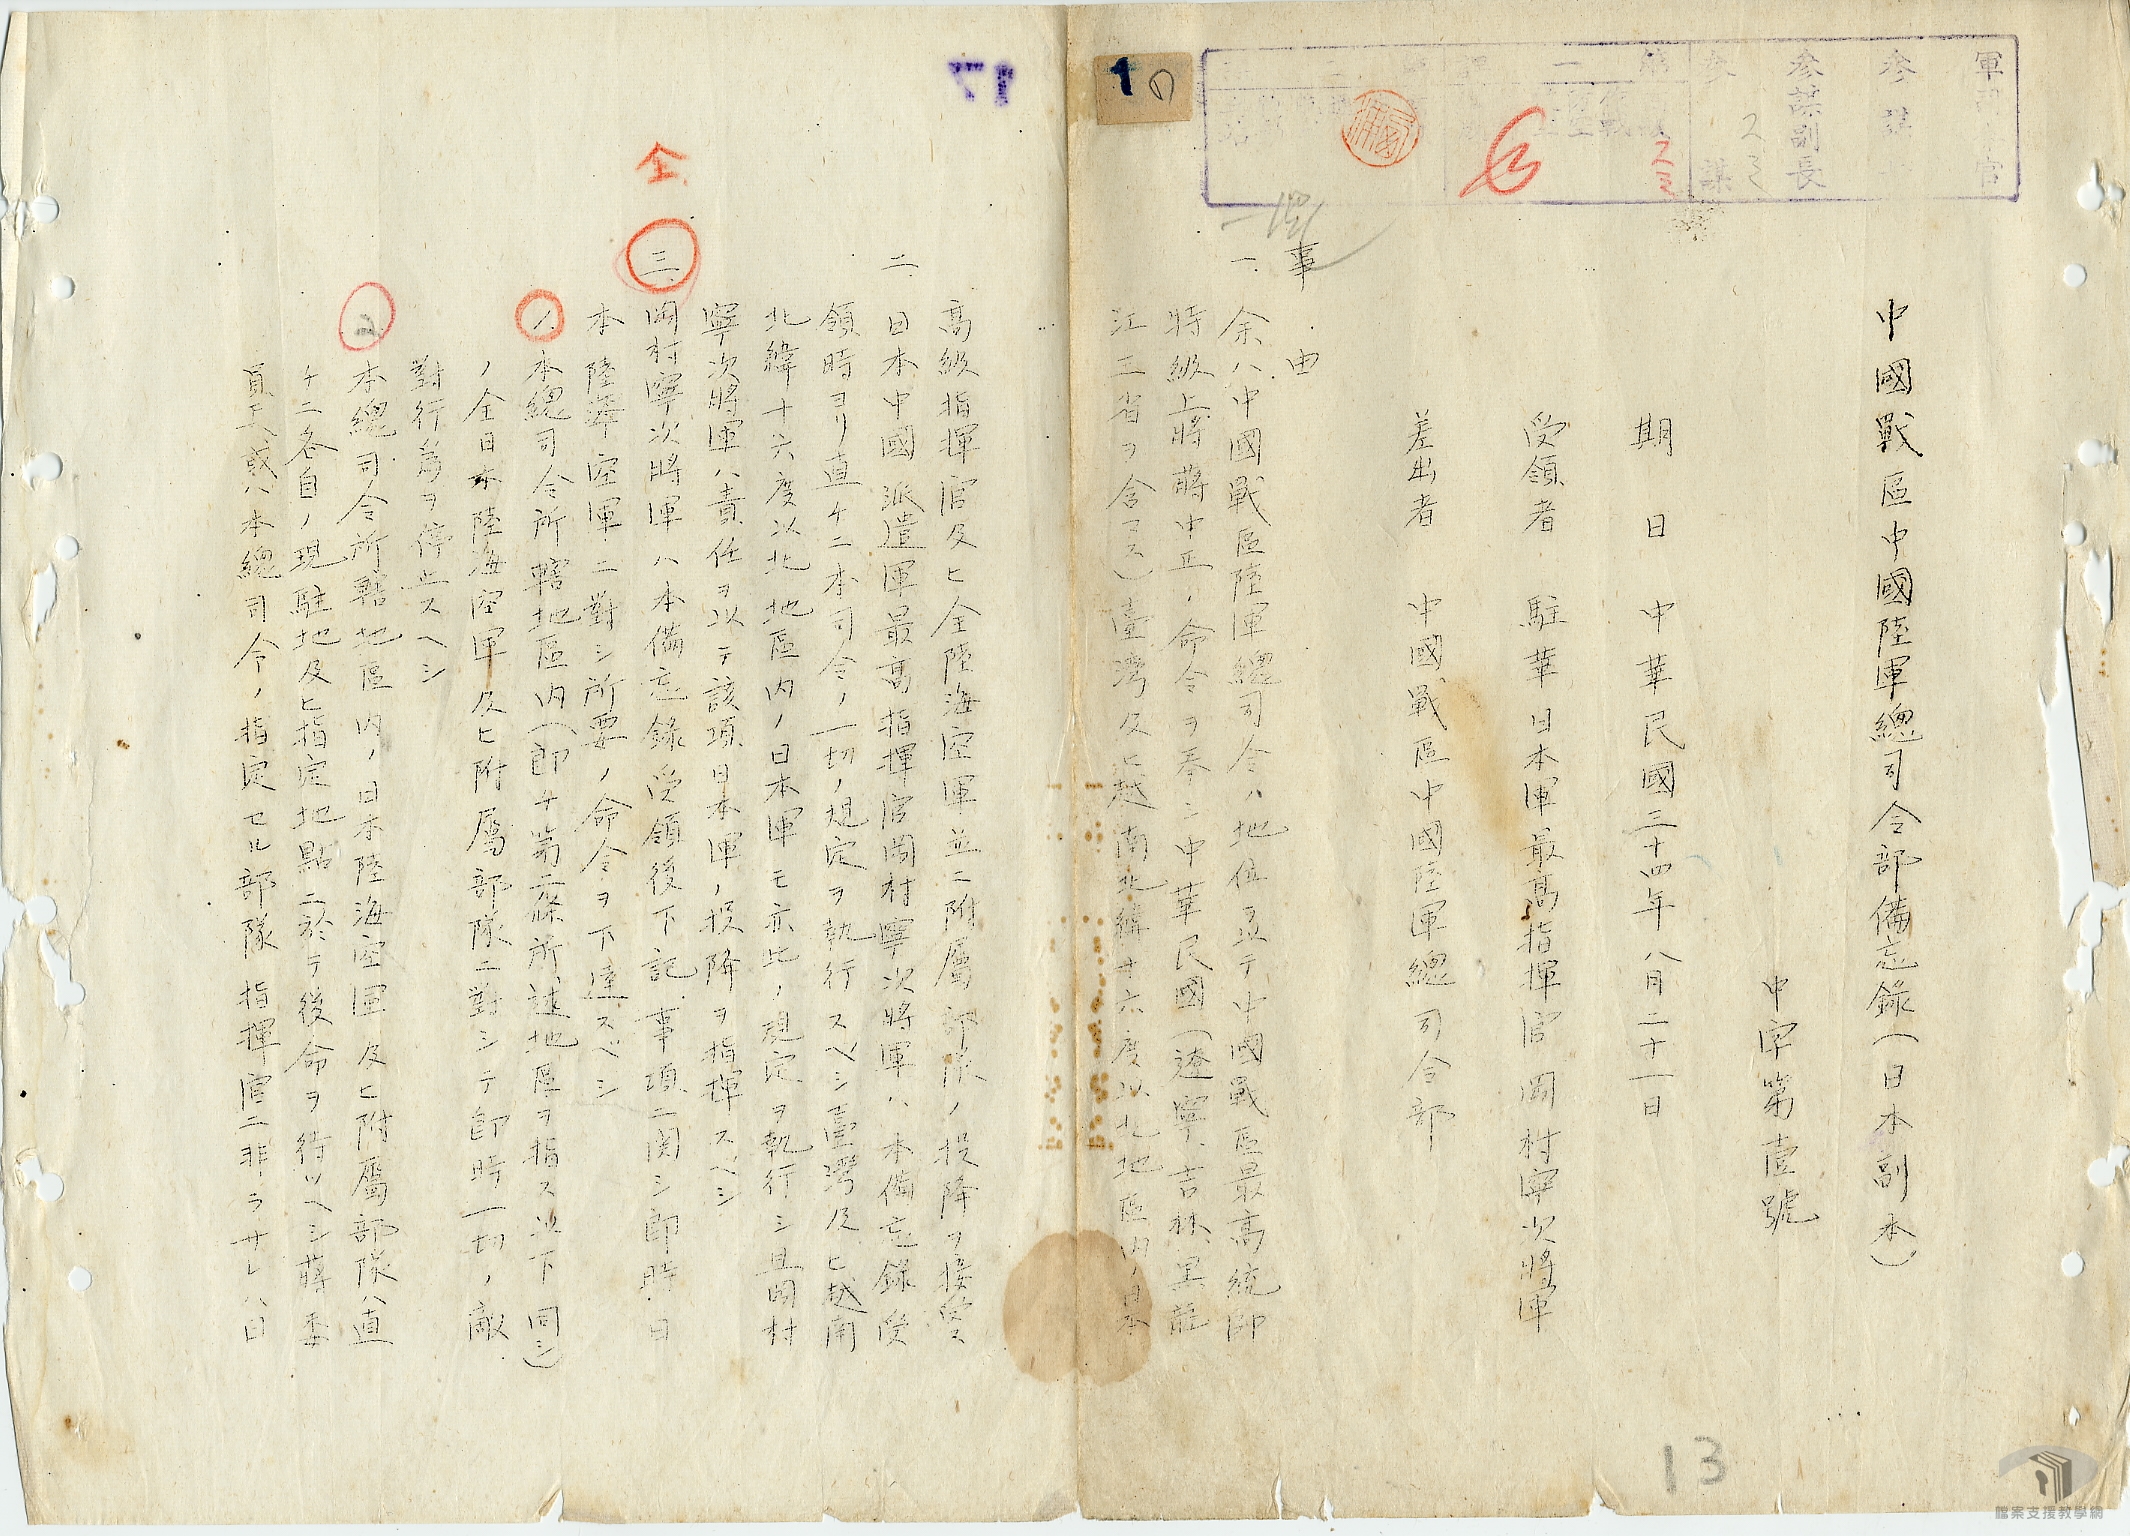 軍司令官
參謀長
參謀副長
參謀
10
中國戰區中國陸軍總司令部備忘錄(日本副本)
中字第壹號
期日 中華民國三十四年八月二十一日
受領者 駐華日本軍最高指揮官 岡村寧次將軍
差出者 中國戰區中國陸軍總司令部
事由
一、余ハ中國戰區陸軍總司令ノ地位並テ中國戰區最高統帥
特級上將蔣中正ノ命令ヲ奉シ中華民國(遼寧、吉林、黑龍
江三省ヲ含マス)臺灣及越南北緯十六度以北地區內ノ日本
高級指揮官及ヒ全陸海空軍並ニ附屬部隊ノ投降ヲ接受ス
二、日本中國派遣軍最高指揮官岡村寧次將軍ハ本備忘錄受
領時ヨリ直ケニ本司令ノ一切ノ規定ヲ執行スベシ臺灣及ヒ越南
北緯十六度以北地區內ノ日本軍モ亦此ノ規定ヲ執行シ且岡村
寧次將軍ハ責任ヲ以テ該項日本軍ノ投降ヲ指揮スベシ
仝
三、岡村寧次將軍ハ本備忘錄受領後下記事項ニ関シ即時日
本陸海空軍ニ對シ所要ノ命令ヲ下達スベシ
1.本總司令所轄地區內(即チ第二條所述地區ヲ指ス以下同シ)
ノ全日本陸海空軍及ヒ附屬部隊ニ對シテ即時一切ノ敵
對行為ヲ停止スヘシ
2.本總司令所轄地區內ノ日本陸海空軍及ヒ附屬部隊ハ直
チニ各自ノ現駐地及ヒ指定地點ニ於テ後命ヲ待ツヘシ蔣委
員長或ハ本總司令ノ指定セル部隊指揮官ニ非ラサレハ日
13
檔案支援教學網